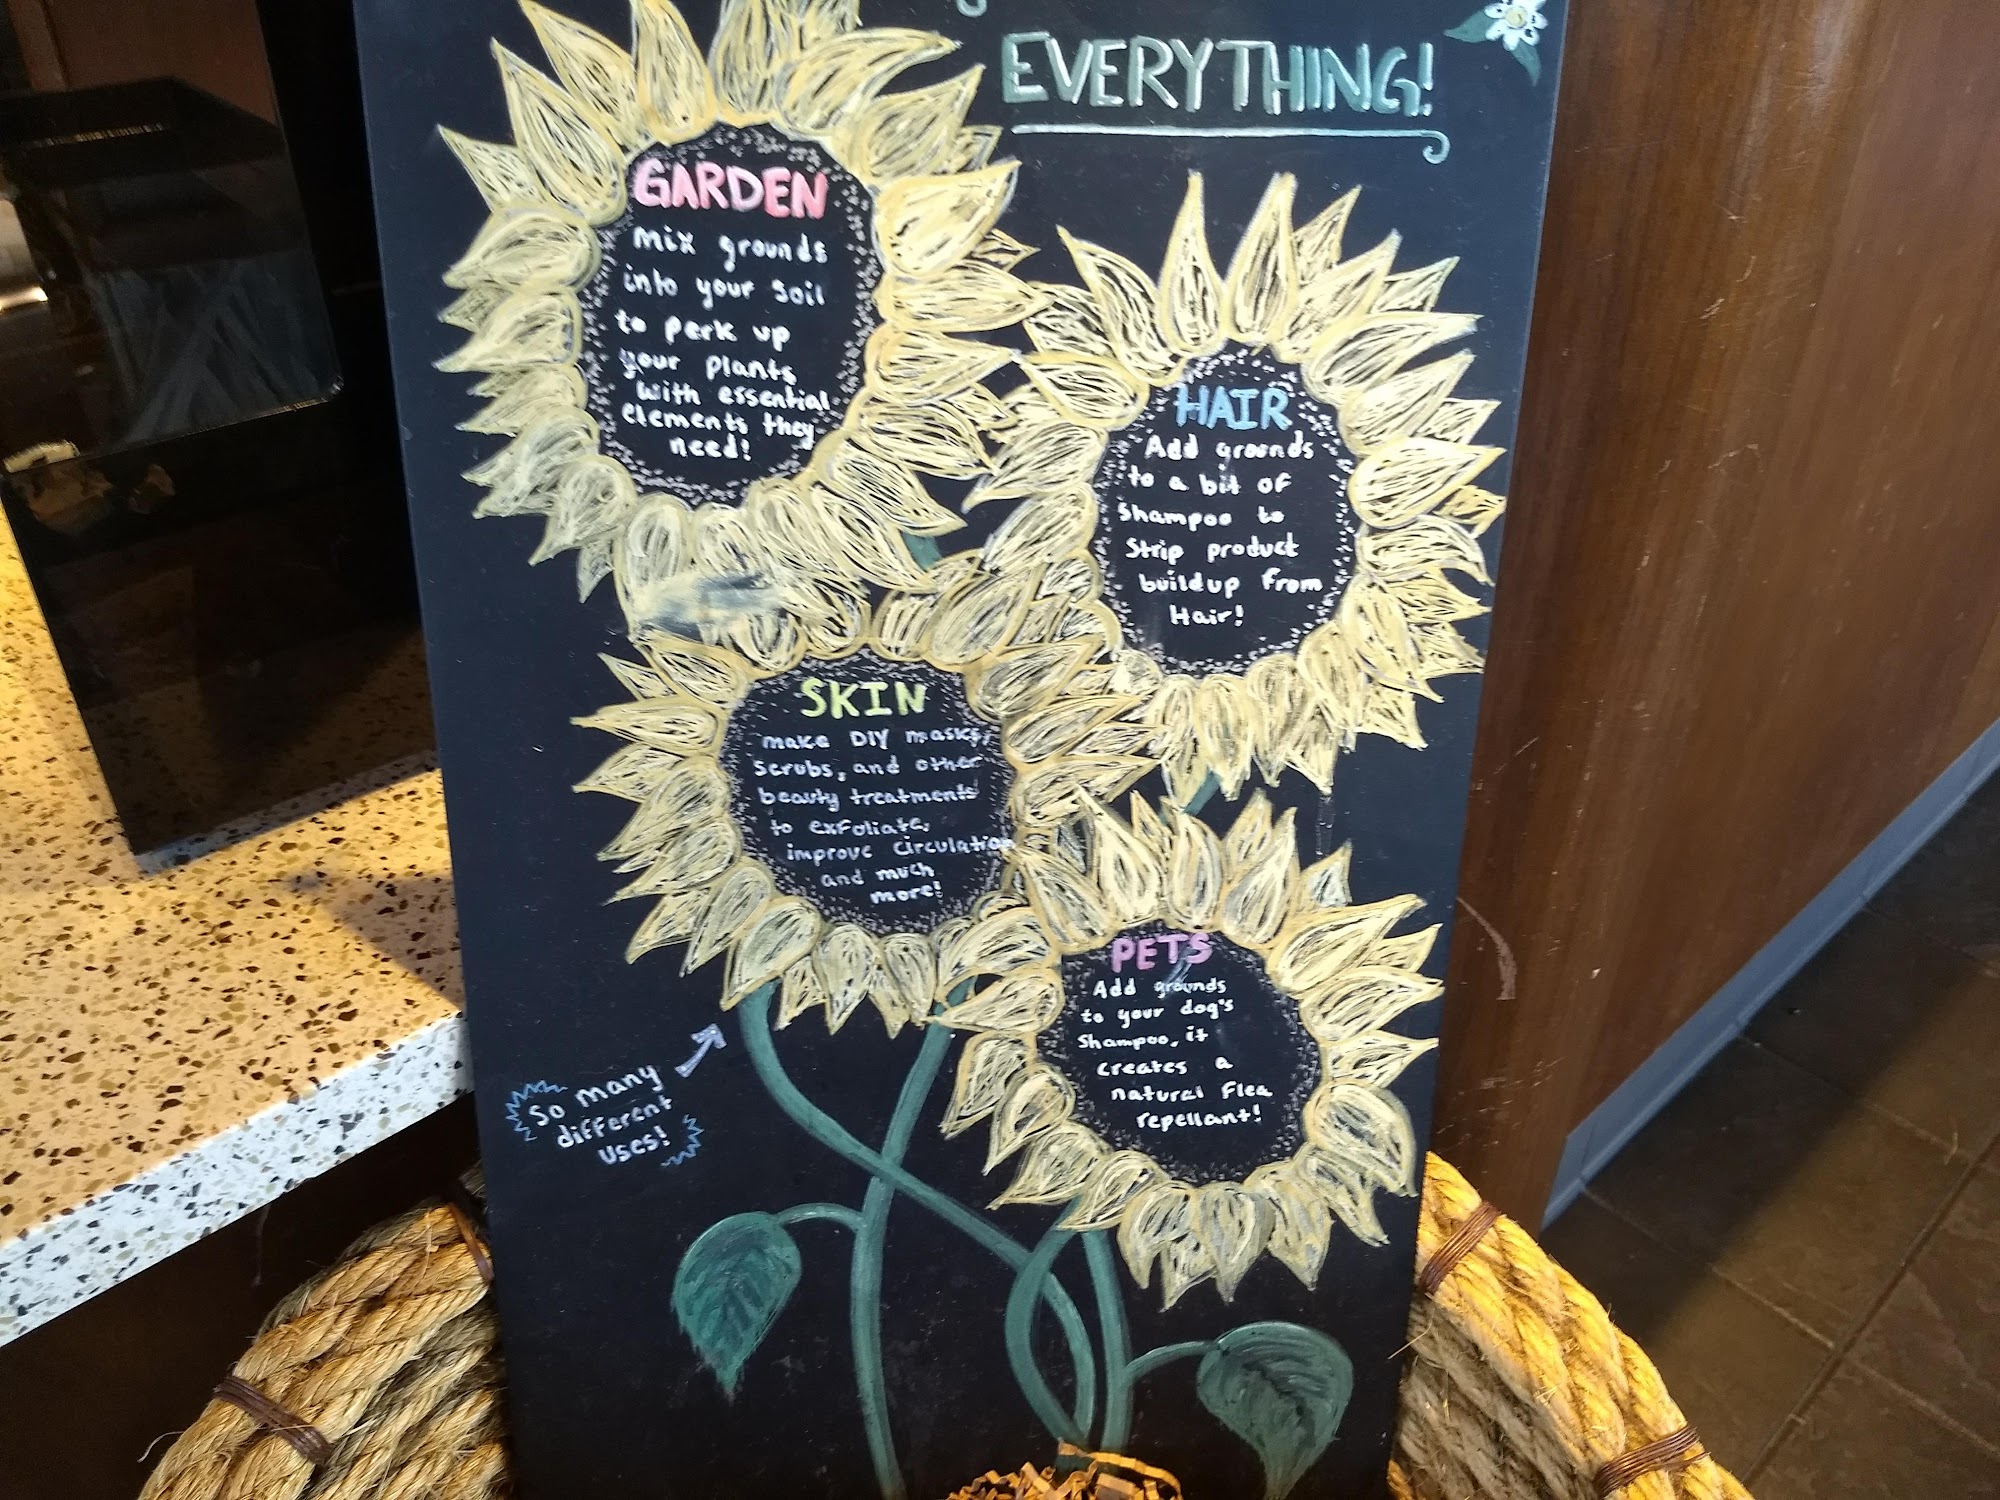 EVERYTHING!
GARDEN
mix grounds
into your soil
to perk up
your plants
with essential
elements they
need!
HAIR
Add grounds
to a bit of
shampoo to
strip product
buildup from
Hair!
SKIN
make DIY masks,
scrubs, and other
beauty treatments
to exfoliate,
improve circulation
and much
more!
PETS
Add grounds
to your dog's
shampoo, it
creates a
natural flea
repellant!
So many
different
uses!